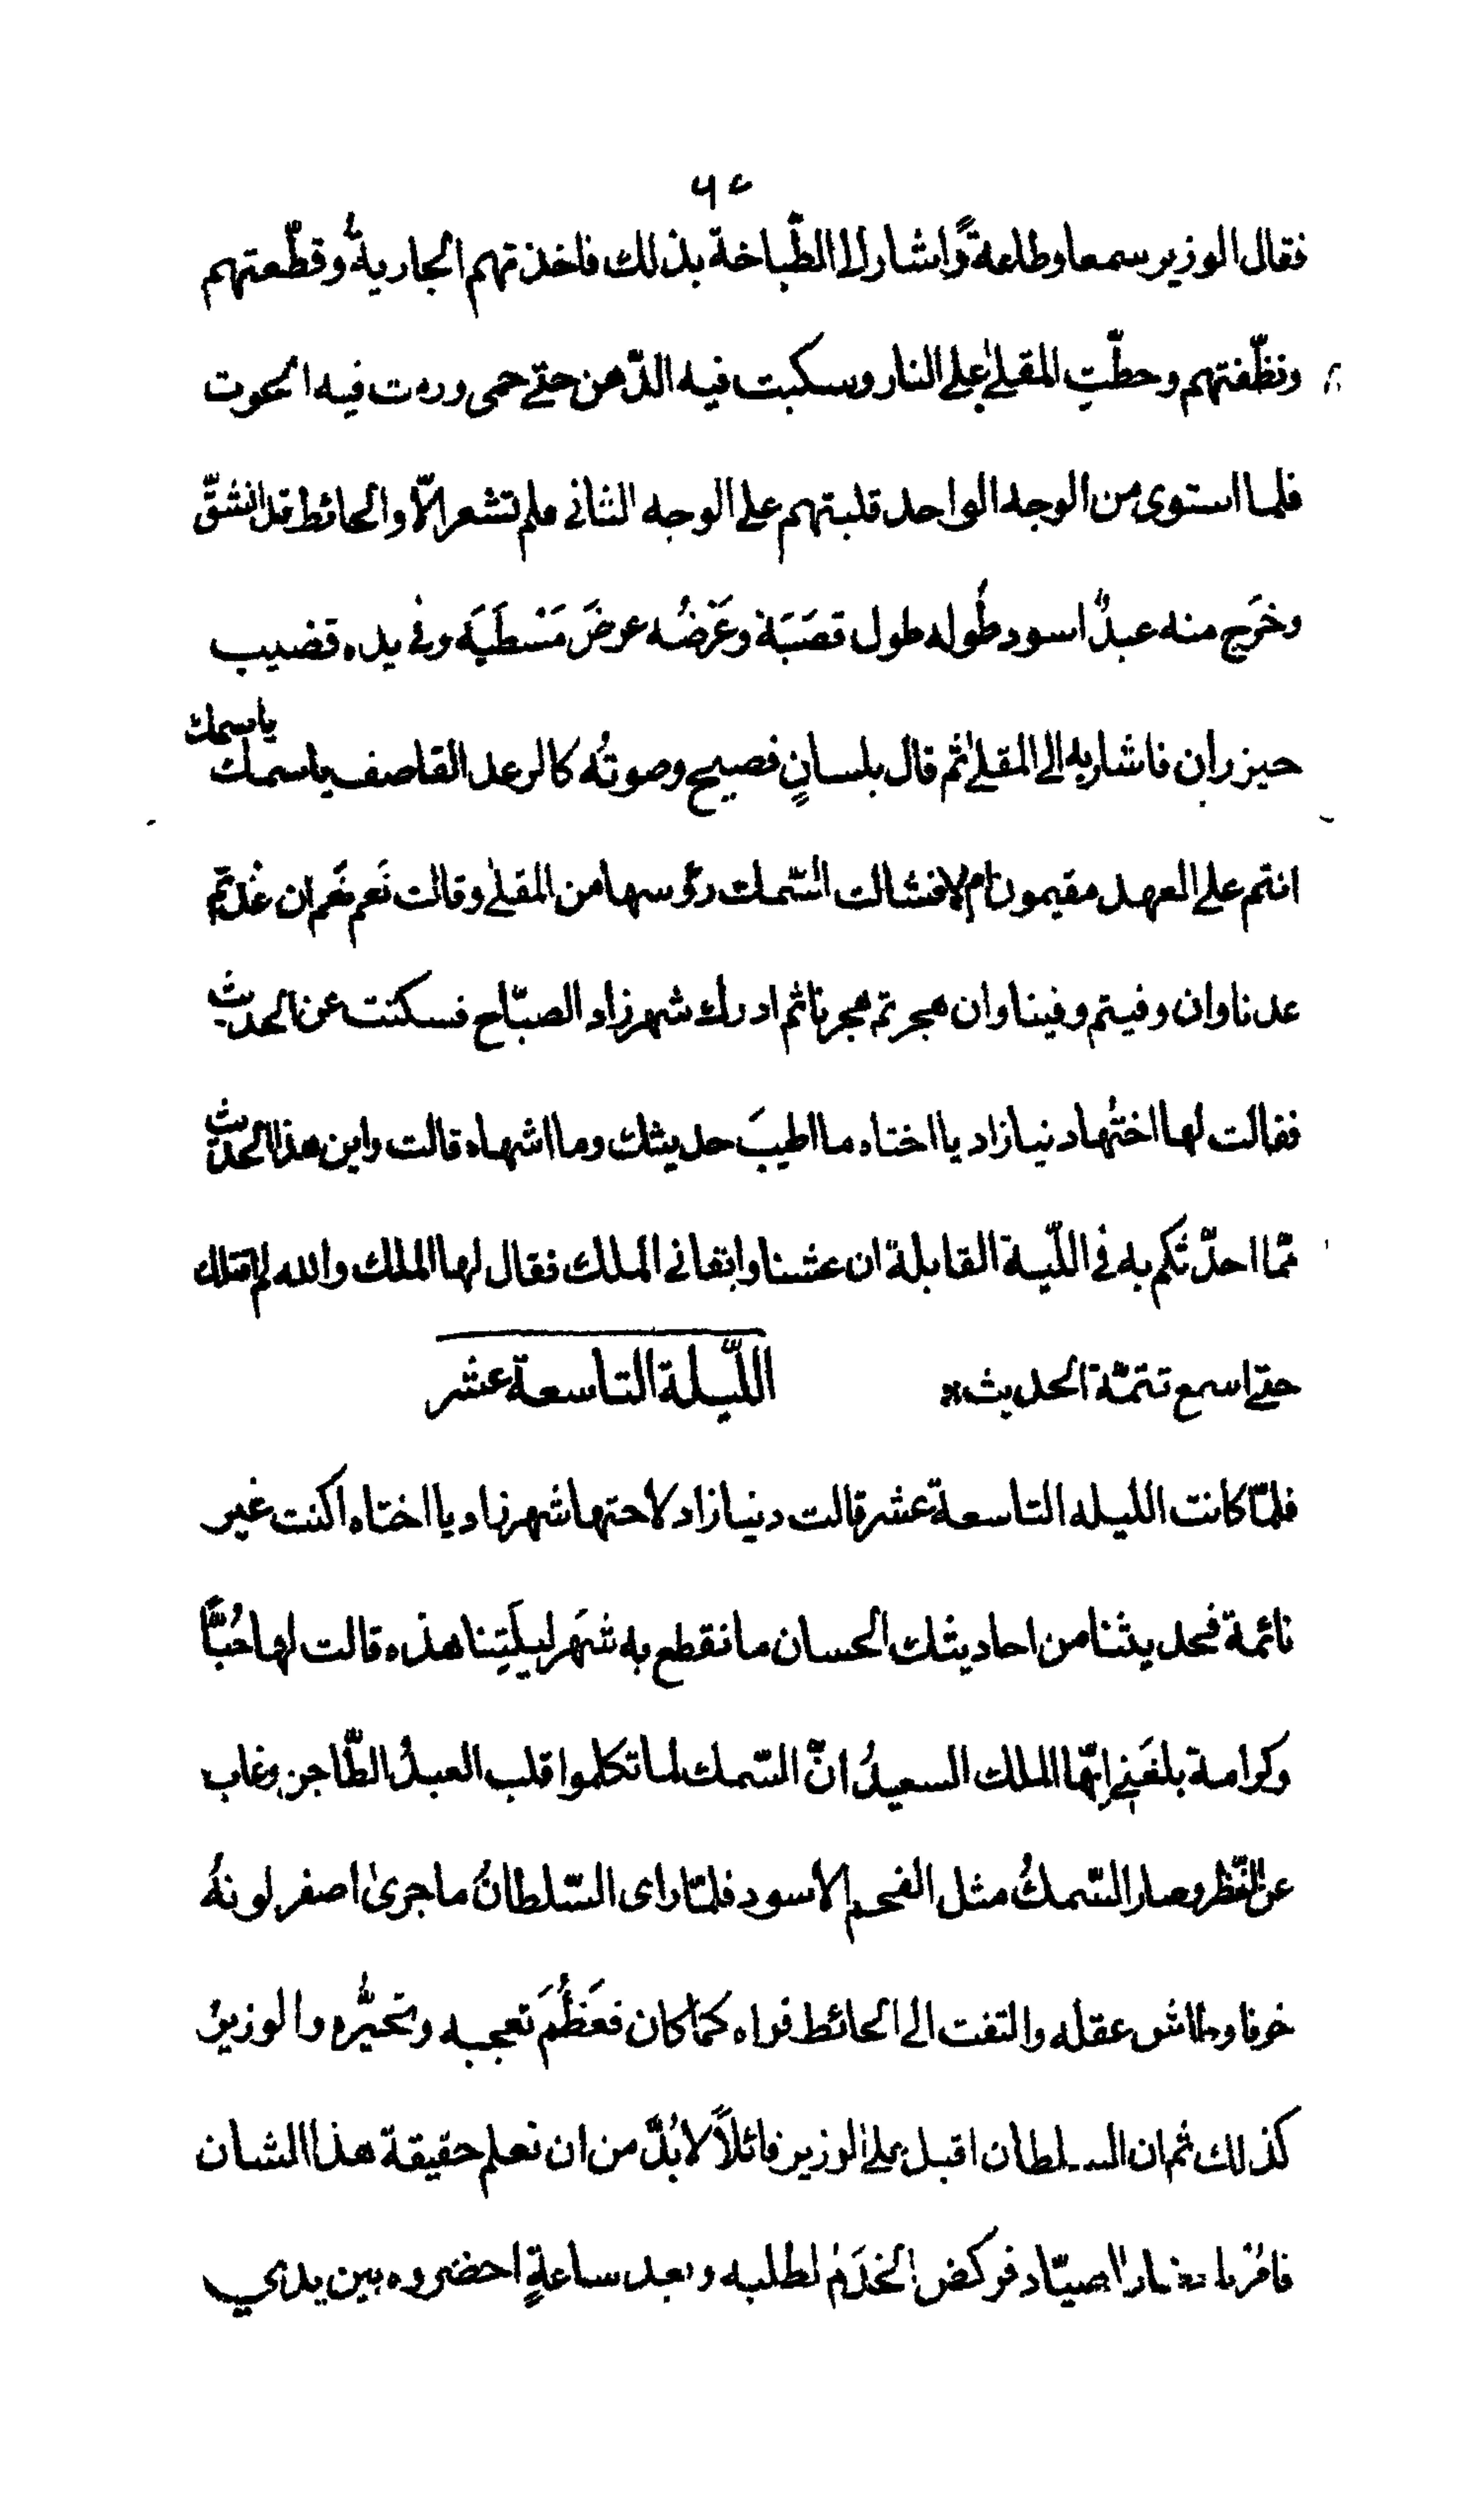 فقال الوزير سمعا وطاعةً واشار الا الطّباخة بذلك فاخذتهم الجاريةُ وقطّعتهم
ونظّفتهم وحطّت المقلىٰ علي النار وسكبت فيه الدّهن حتي حمى وردت فيه الحوت
فلما استوى من الوجه الواحد قلبتهم علي الوجه الثاني فلم تشعر الّا والحائط قد انشقَّ
وخرَج منه عبدٌ اسود طُوله طول قصَبَة وعَرَضُه عرضَ مَسْطَبَه وفي يده قضيب
حيزران فاشار به الي المقلىٰ ثم قال بلسانٍ فصيح وصوتُه كالرعد القاصف يا سمك
يا سمك
انتم علي العهد مقيمون ام لا فشالت السّمك رؤسها من المقلىٰ وقالت نَعم نَعم ان عُدتم
عدنا وان وفيتم وفينا وان هجرتم هجرنا ثم ادرك شهرزاد الصبّاح فسكتت عن الحديث
فقالت لها اختُها دنيازاد يا اختاه ما اطيبَ حديثك وما اشهاه قالت واين هذا الحديث
ممّا احدّثكم به في اللّيلة القابلة ان عشنا وابقاني الملك فقال لها الملك والله لم اقتلك
حتي اسمع تتمّة الحديث *
اللّيلة التاسعة عشر
فلمّا كانت الليله التاسعة عشر قالت دنيازاد لاختها شهرزاد يا اختاه اكنت غير
نائمة فحديثنا من احاديثك الحسان ما نقطع به سَهَر ليلَتِنا هذه قالت لها حُبًّا
وكرامة بلغَني ايّها الملك السعيدُ انّ السّمك لما تكلموا قلب العبدُ الطّاجن وغاب
عن النّظر وصار السّمكُ مثل الفحم الاسود فلمّا راى السّلطانُ ما جرىٰ اصفر لونهُ
خوفا وطاش عقله والتفت الي الحائط فراه كما كان فعَظُمَ تعجبه وتحيّره والوزيرُ
كذلك ثم ان السلطان اقبل علىٰ الوزير قائلاً لا بُدَّ من ان نعلم حقيقة هذا الشان
فامُر لنا الصيّاد فركض الخدَمُ لطلبه وبعد ساعةٍ احضروه بين يدي